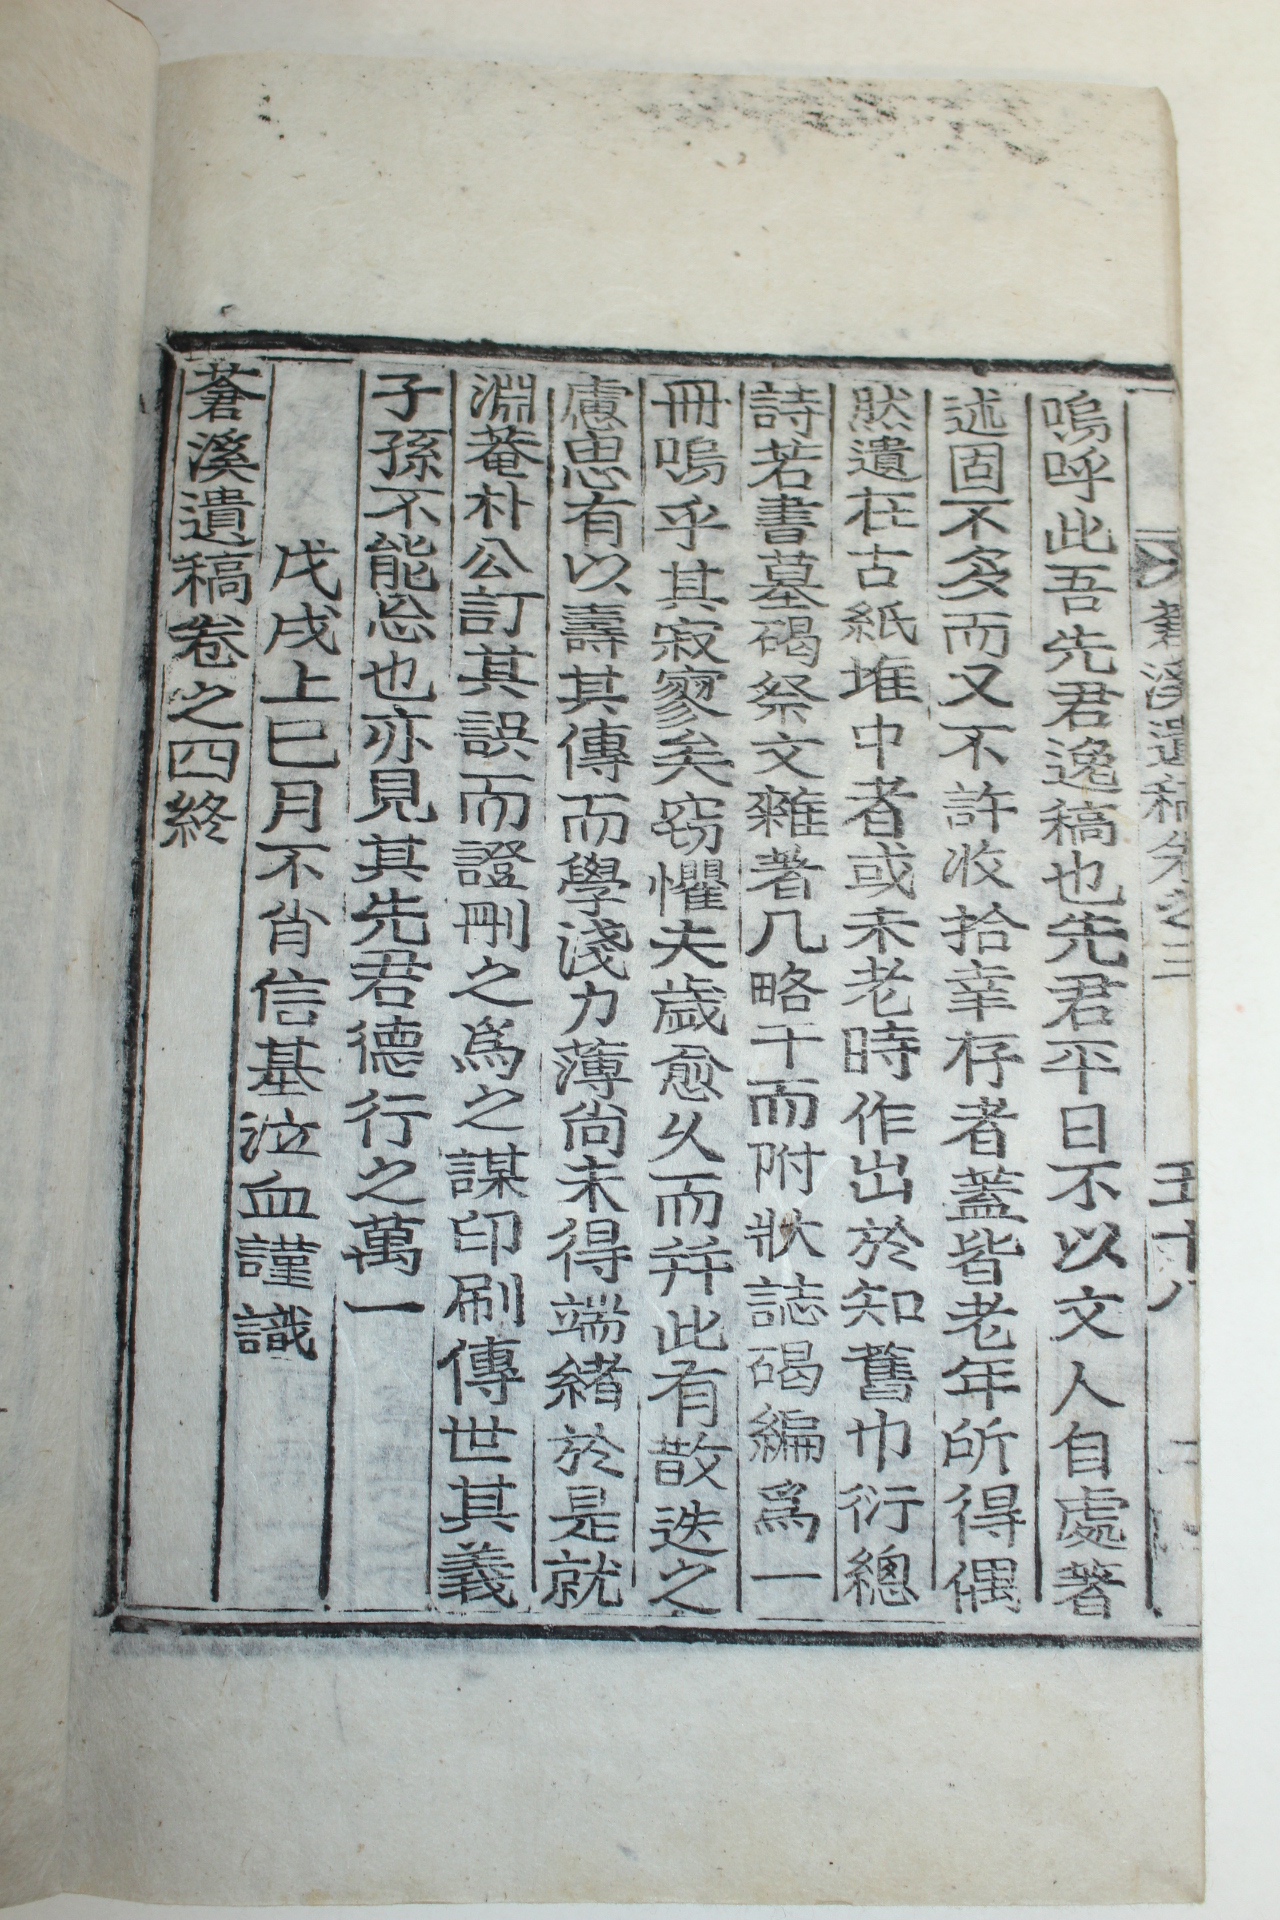 蒼溪遺稿卷之三
五十八
嗚呼此吾先君逸稿也先君平日不以文人自處著
述固不多而又不許收拾幸存者蓋皆老年所得偶
然遺在古紙堆中者或未老時作出於知舊巾衍總
詩若書墓碣祭文雜著凡略干而附狀誌碣編爲一
冊嗚乎其寂寥矣窃懼夫歲愈久而并此有散迭之
慮思有以壽其傳而學淺力薄尙未得端緖於是就
淵菴朴公訂其誤而證刪之爲之謀印刷傳世其義
子孫不能忘也亦見其先君德行之萬一
戊戌上巳月不肖信基泣血謹識
蒼溪遺稿卷之四終